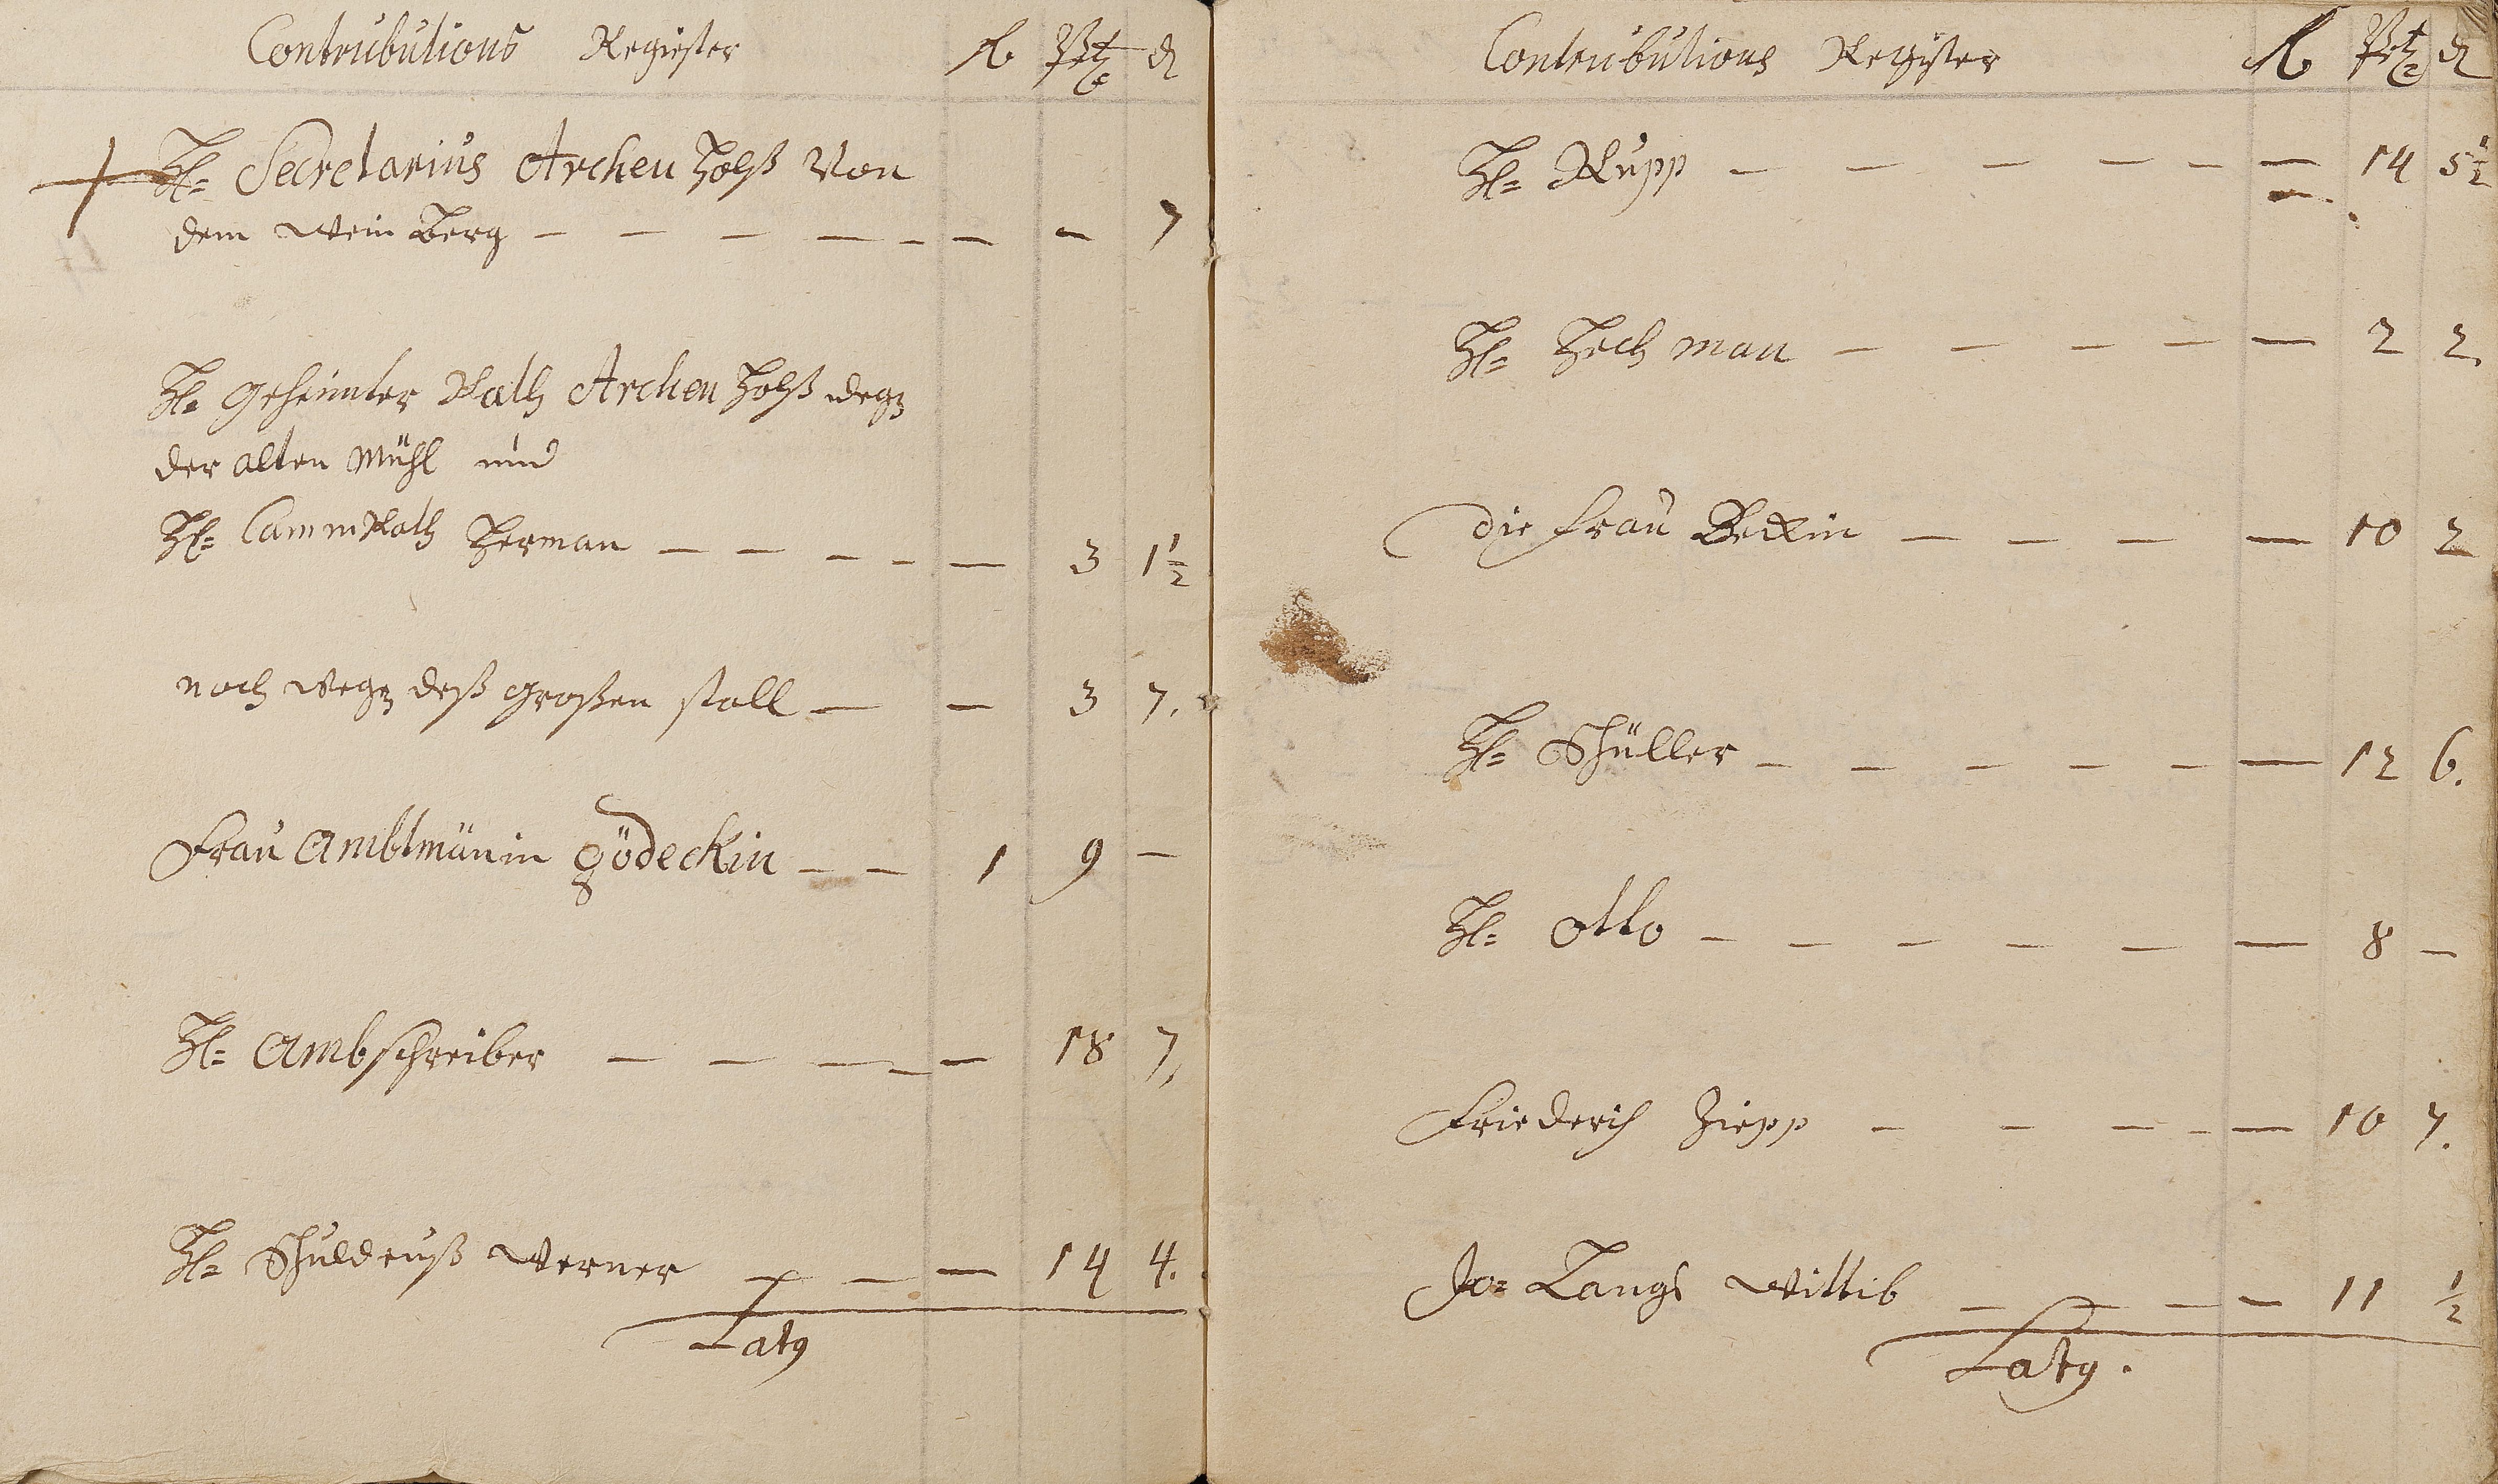 Contributions Register fl Btz d
Hl= Secretarius Archenholtz Von
dem wein Berg — — — — — — — 7
Hl= geheimter Rath Archenholtz weg
der alten Mühl und
Hl= CammRath Herman — — — — — 3 1 1/2
noch weg deß großen stall — — 3 7.
Frau Ambtmänin gödeckin — — 1 9 —
Hl= Ambschreiber — — — — — 18 7,
Hl= Werner — — — 14 4.
Lat9
Contributions Register fl Btz d
Hl= Rupp — — — — — — 14 5 1/2
Hl= Hech man — — — — — 2 2.
die frau Beckin — — — — 10 2
Hl= Schüller — — — — — — 12 6.
Hl= Otto — — — — — — 8 —
Friederich Ziepp — — — — — 10 7.
Jo= Langs Wittib — — — — 11 1/2
Lat9.